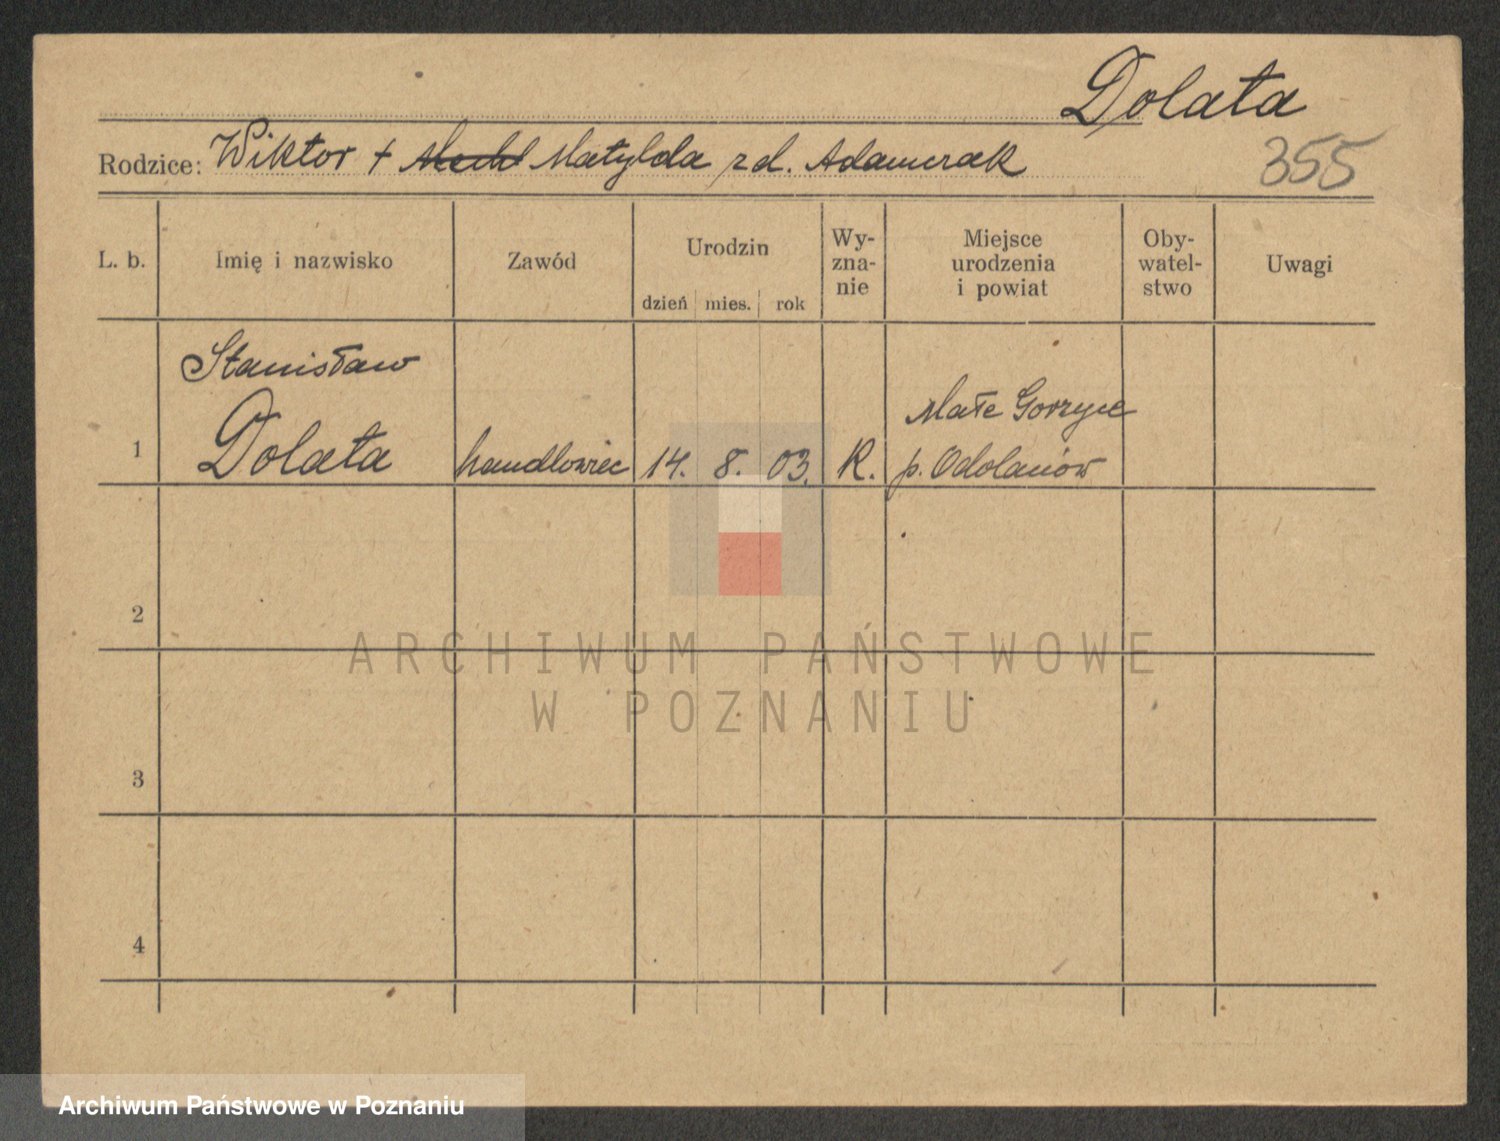 Dolata
Rodzice: Wiktor + Matylda zd. Adamczak
355
L. b. Imię i nazwisko Zawód Urodzin dzień mies. rok Wy-zna-nie Miejsce urodzenia i powiat Oby-watel-stwo Uwagi
Stanisław Małe Gorzyce
1 Dolata handlowiec 14. 8. 03. R. p. Odolanów
2
ARCHIWUM PAŃSTWOWE
W POZNANIU
3
4
Archiwum Państwowe w Poznaniu